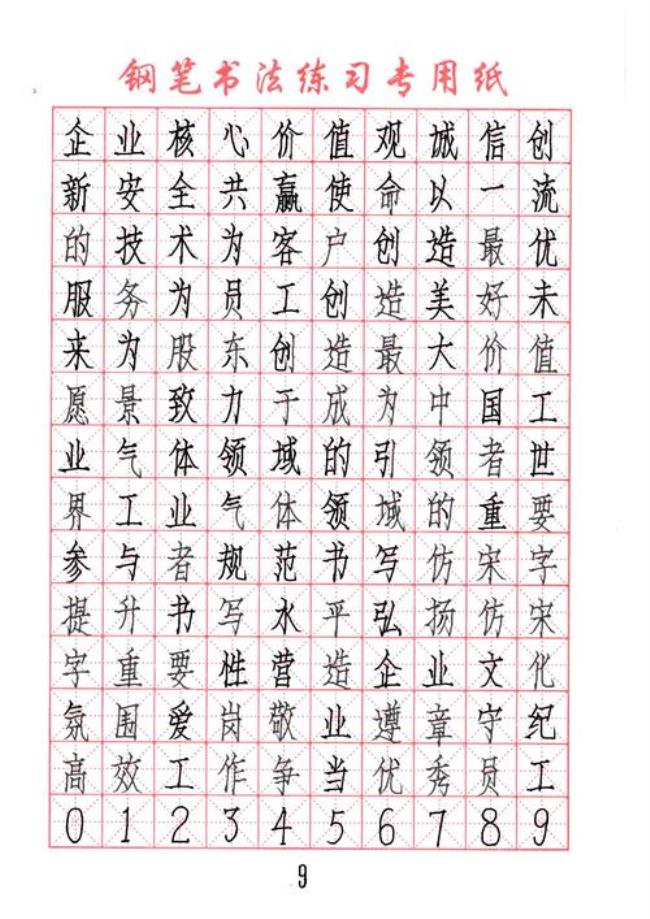 钢笔书法练习专用纸
企业核心价值观诚信创
新安全共赢使命以一流
的技术为客户创造最优
服务为员工创造美好未
来为股东创造最大价值
愿景致力于成为中国工
业气体领域的引领者世
界工业气体领域的重要
参与者规范书写仿宋字
提升书写水平弘扬仿宋
字重要性营造企业文化
氛围爱岗敬业遵章守纪
高效工作争当优秀员工
0123456789
9